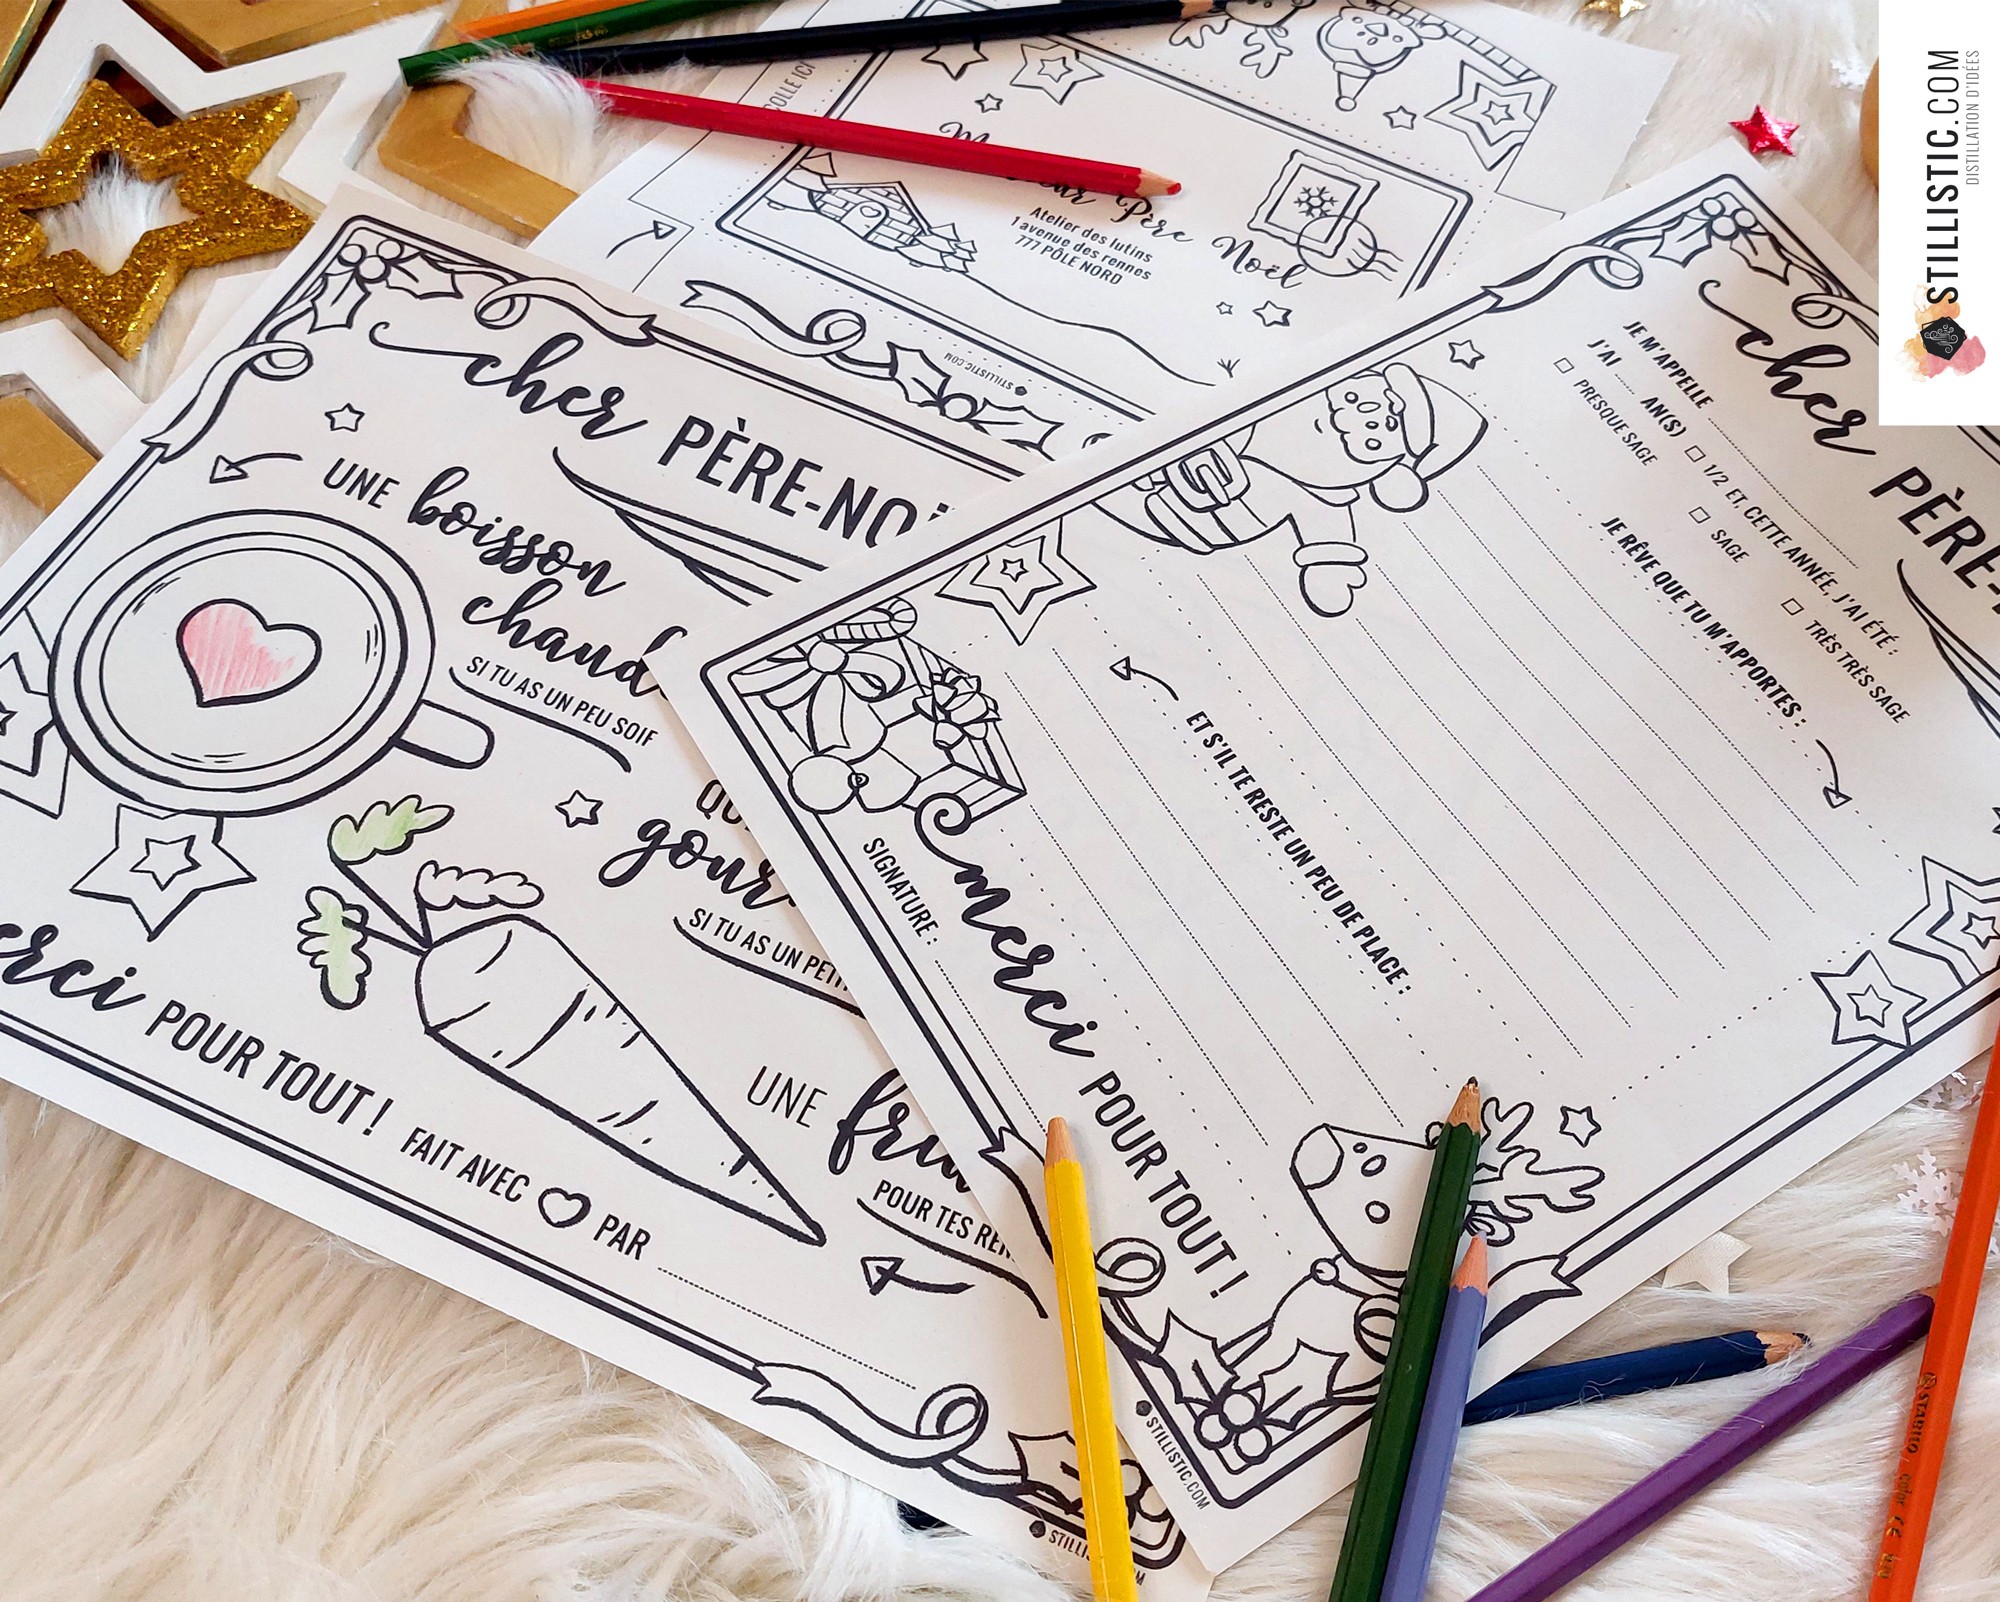 STILLISTIC.COM
DISTILLATION D'IDÉES
COLLE ICI
Père Noël
Atelier des lutins
1 avenue des rennes
777 PÔLE NORD
STILLISTIC.COM
cher PÈRE-NO
UNE boisson
chaud
SI TU AS UN PEU SOIF
gour
SI TU AS UN PETI
UNE fru
POUR TES REN
erci POUR TOUT !
FAIT AVEC PAR
STILLIS
cher PÈRE-
JE M'APPELLE
J'AI AN(S) 1/2 ET, CETTE ANNÉE, J'AI ÉTÉ :
PRESQUE SAGE SAGE TRÈS TRÈS SAGE
JE RÊVE QUE TU M'APPORTES :
ET S'IL TE RESTE UN PEU DE PLACE :
merci POUR TOUT !
SIGNATURE :
STILLISTIC.COM
STABILO color